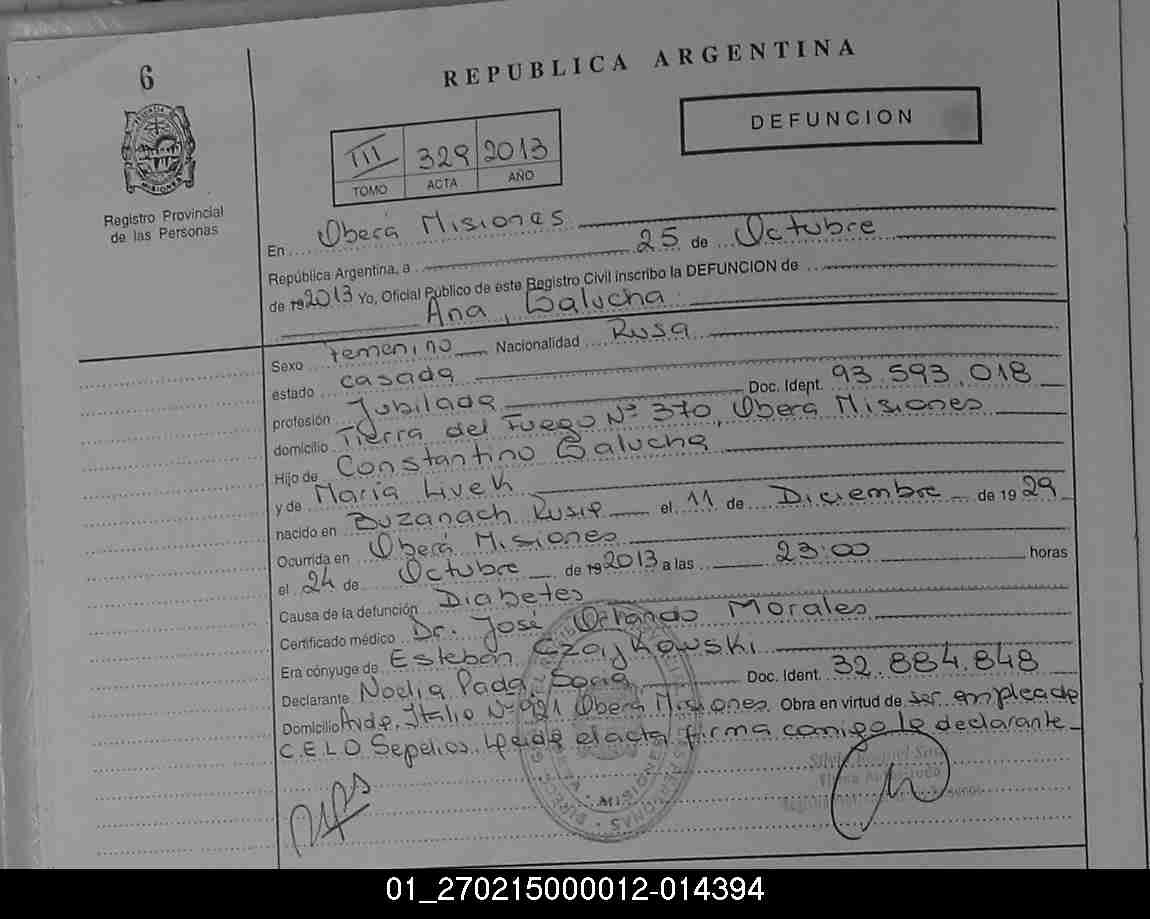 6
REPUBLICA ARGENTINA
DEFUNCION
III 329 2013
TOMO ACTA AÑO
Registro Provincial
de las Personas
En Oberá Misiones
República Argentina, a 25 de Octubre
de 19 2013 Yo, Oficial Público de este Registro Civil inscribo la DEFUNCION de
Ana, Galucha
Sexo Femenino Nacionalidad Rusa
estado casada
profesión Jubilada Doc. Ident. 93.593.018
domicilio Tierra del Fuego Nº 370, Oberá Misiones
Hijo de Constantino Galucha
y de María Livek
nacido en Buzanach Rusia el 11 de Diciembre de 19 29
Ocurrida en Oberá Misiones
el 24 de Octubre de 19 2013 a las 23:00 horas
Causa de la defunción Diabetes
Certificado médico Dr. José Orlando Morales
Era cónyuge de Esteban Czajkowski
Declarante Noelia Soria Doc. Ident. 32.884.848
Domicilio Avda. Italia Nº 921 Oberá Misiones Obra en virtud de ser empleada
C.E.L.O Sepelios. Leida el acta firma conmigo la declarante
01_270215000012-014394